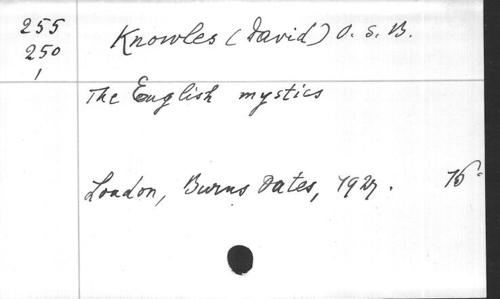 255
250
1
Knowles (David) O. S. B.
The English mystics
London, Burns Oates, 1927.